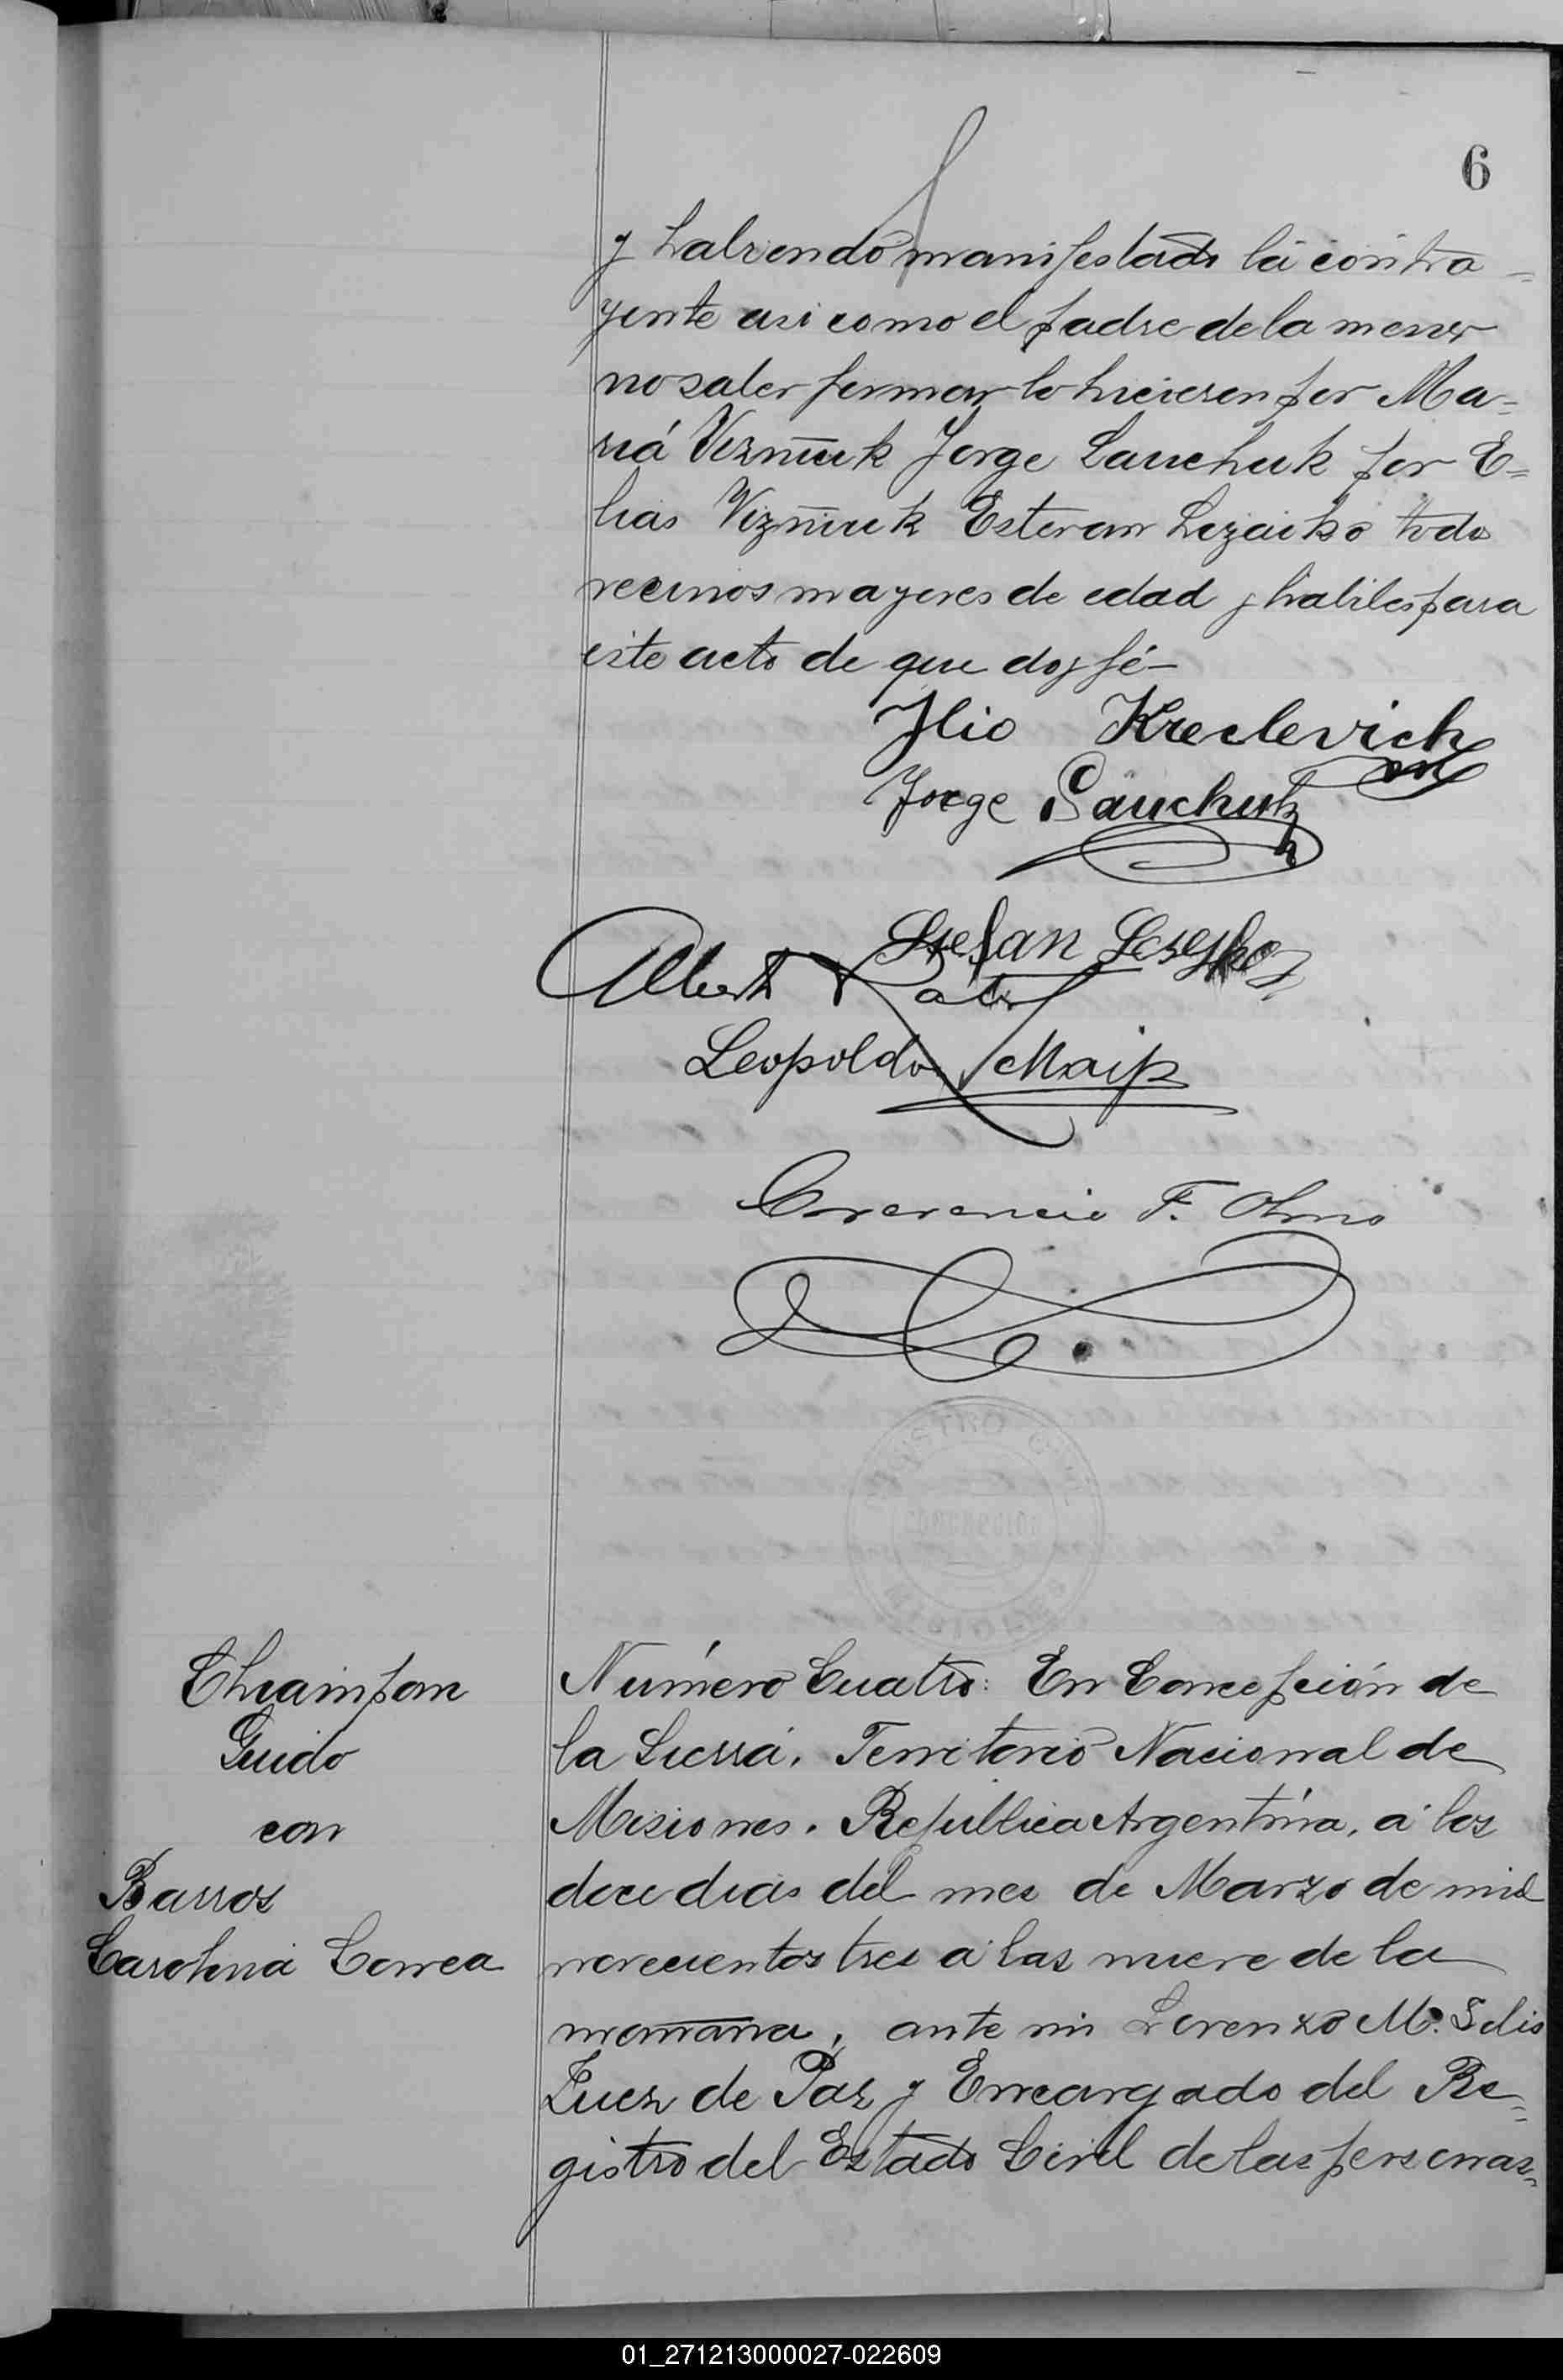 6
y habiendo manifestado la contra-
yente asi como el padre de la menor
no saber firmar lo hicieron por Ma=
riá Vizñiuk Jorge Lauchuk por E=
lias Vizñiuk Estevan Lezaiko todos
vecinos mayores de edad y habiles para
este acto de que doy fé—
Ilio Kreclevich
Jorge Lauchuk
Stefan
Albert
Leopoldo Maip
F. Olmo
REGISTRO CIVIL
CONCEPCION
MISIONES
Chiampan
Guido
con
Barros
Carolina Correa
Número Cuatro: En Concepción de
la Sierra, Territorio Nacional de
Misiones. República Argentina, a los
doce dias del mes de Marzo de mil
novecientos tres a las nueve de la
mañana, ante mi Lorenzo M. Solis
Juez de Paz y Encargado del Re=
gistro del Estado Civil de las personas
01_271213000027-022609